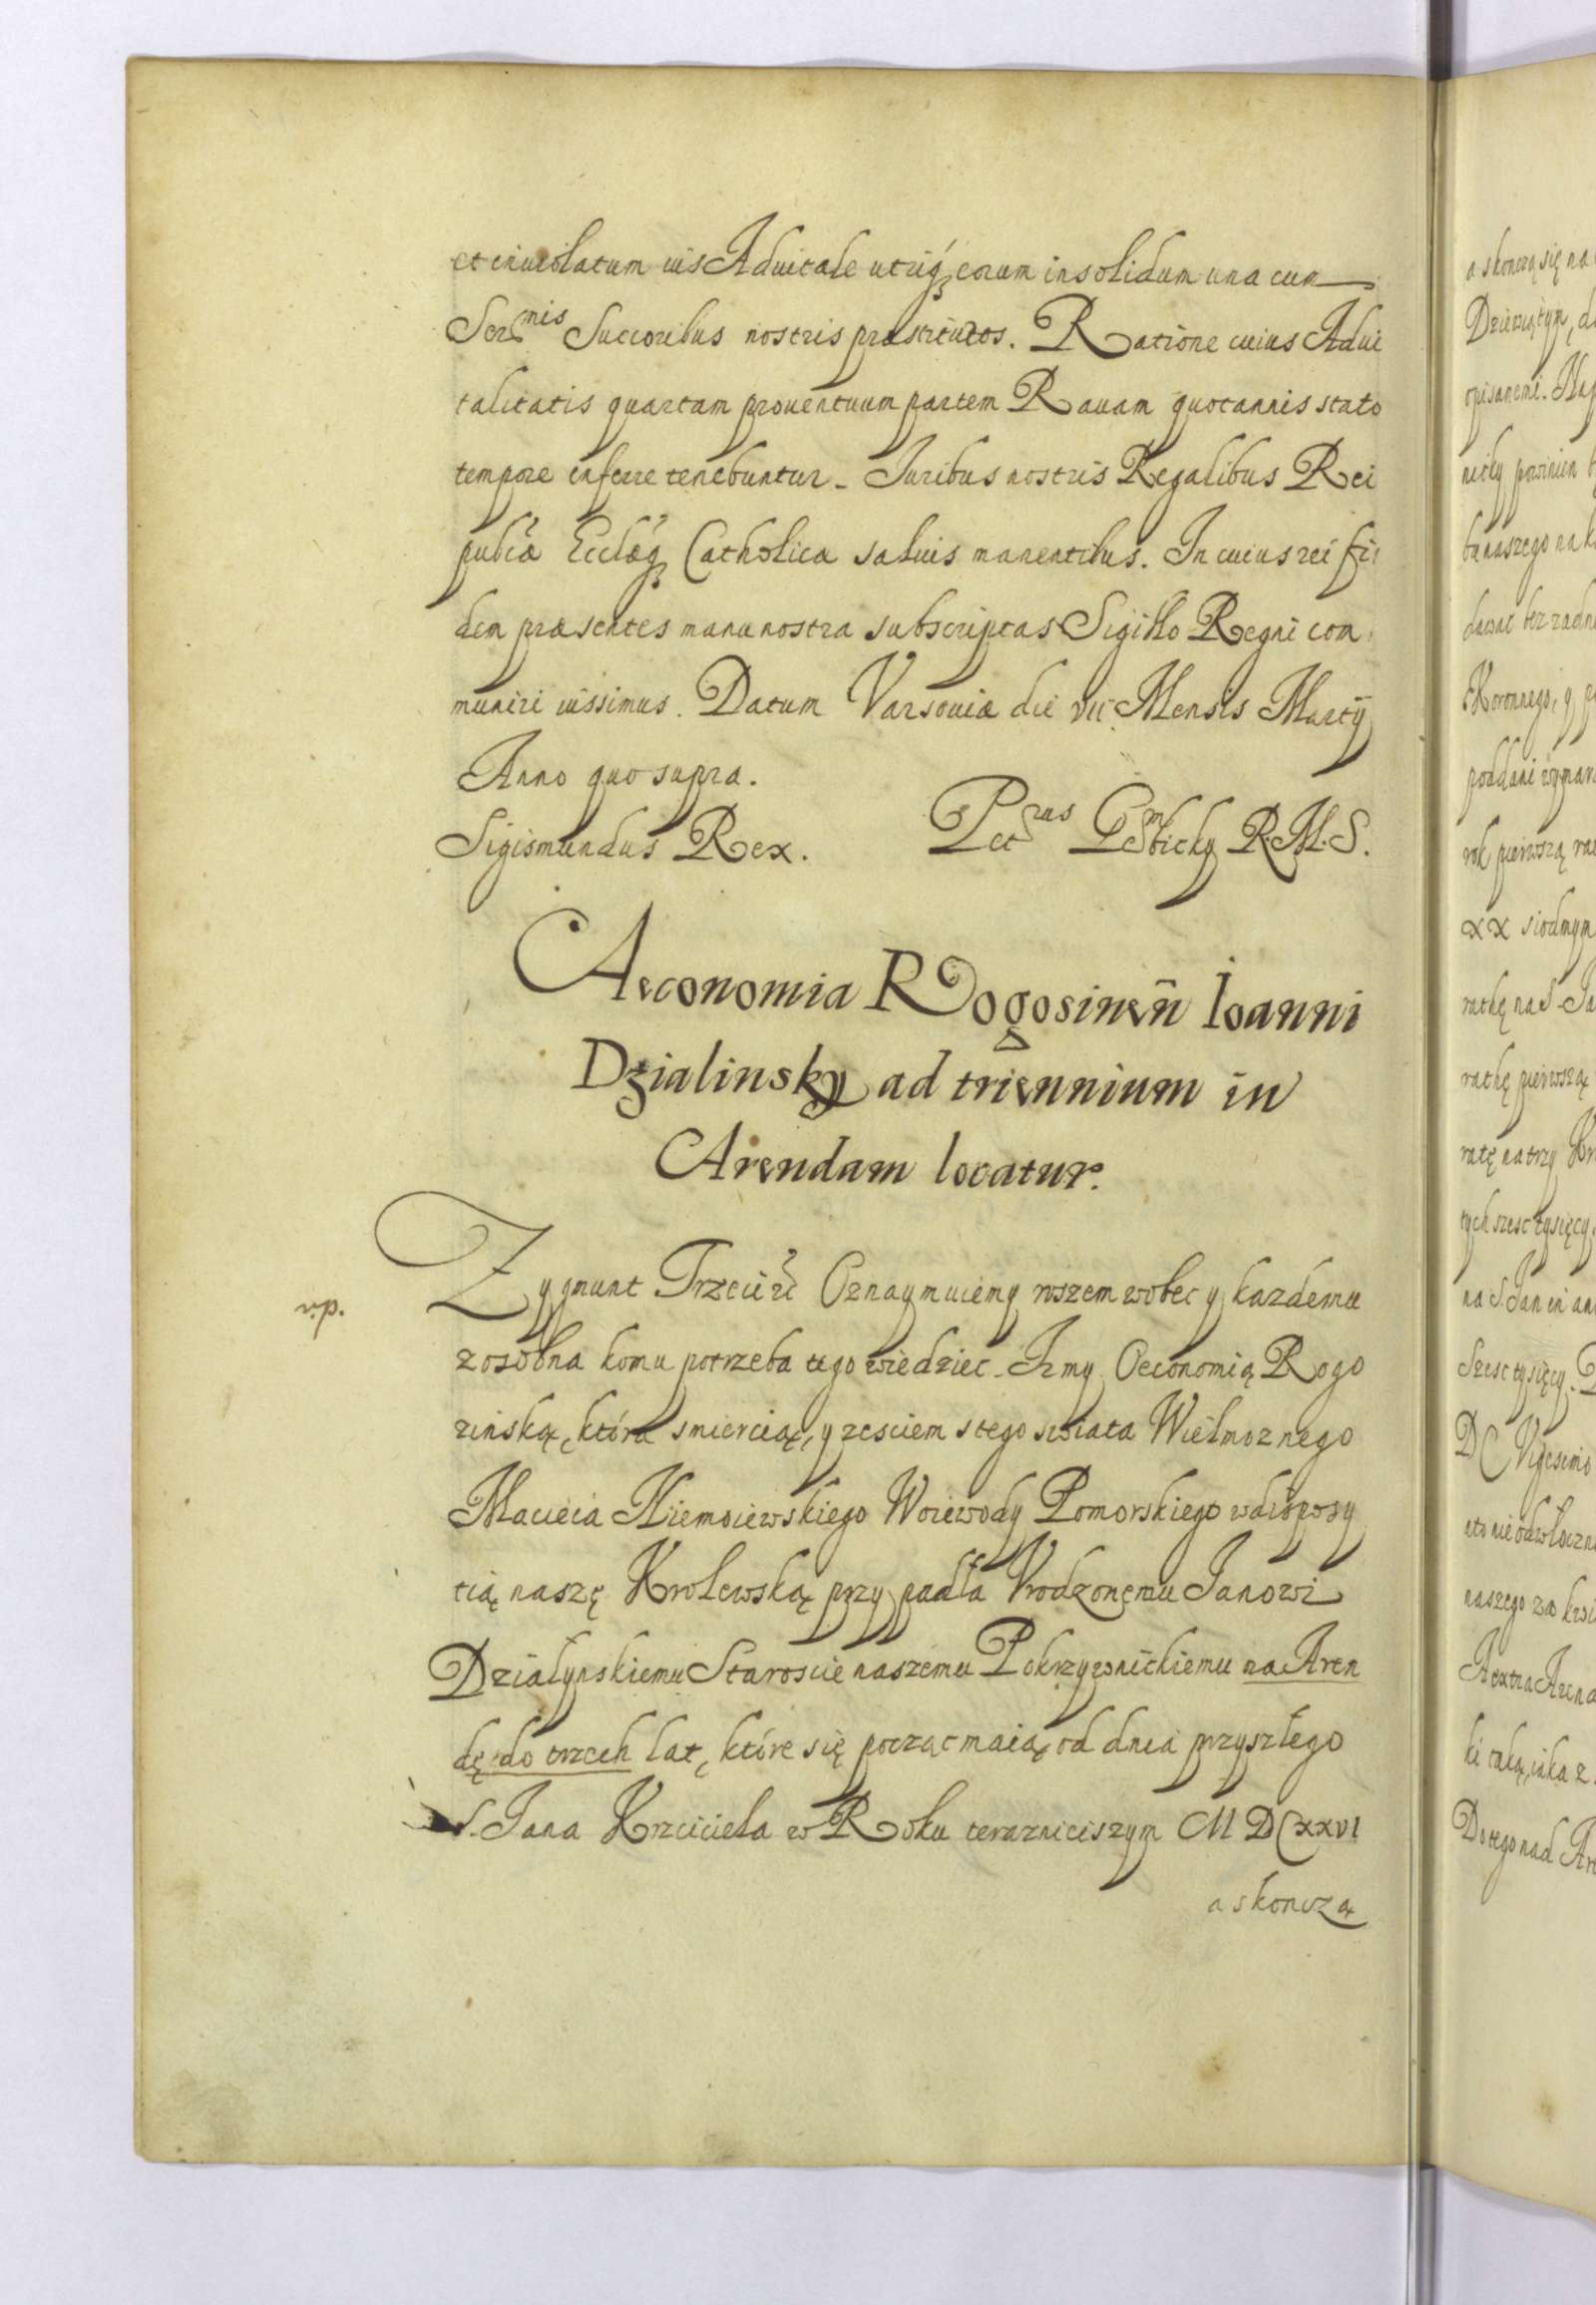 et inuiolatum ius Aduitale utriq3 eorum insolidum una cum
Ser^mis Succoribus nostris præstitutos. Ratione cuius Adui
talitatis quartam prouentuum partem Rauam quotannis stato
tempore inferre tenebuntur. Iuribus nostris Regalibus Rei
publcæ Ecclæq3 Catholica saluis manentibus. In cuius rei fi
dem præsentes manu nostra subscriptas Sigillo Regni com
muniri iussimus. Datum Varsouiæ die vii Mensis Martij
Anno quo supra.
Sigismundus Rex. Petrus Gembicky R.M.S.
Aeconomia Rogosineñ Ioanni
Dzialinsky ad triennium in
Arendam locatur.
Zygmunt Trzeci Oznaymuiemy wszem wobec y kazdemu
zosobna komu potrzeba tego wiedziec. Iz my Oeconomią Rogo
zinską, która smiercią, y zesciem stego swiata Wielmoznego
Macieia Niemoiewskiego Woiewody Pomorskiego w disposy
tią naszę Krolewską przypadła Vrodzonemu Janowi
Działynskiemu Staroscie naszemu Pokrzywnickiemu na Aren
dę do trzech lat, które się począc maią od dnia przyszłego
S. Jana Krzciciela w Roku teraznieiszym MDCxxvi
a skonczą
a skonczą się na
Dziewiątym, d
opisanemi. Na
powinien
ba naszego na k
dawac bez zadn
Koronnego, y
poddani wymar
rok pierwszą ra
xx siodmym
rathę na S. Ja
rathę pierwszą
ratę na trzy Kr
tych szesc tysięcy
na S. Jan
Szesc tysięcy.
DC Vigesimo
naszego za kwi
ki taką, iaka z
Do tego nad Ar